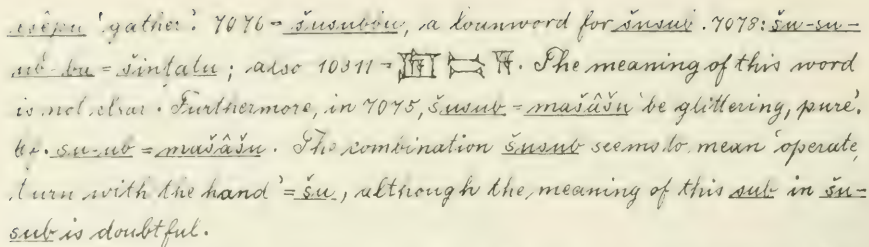 esêpu 'gather'. 7076 = šusubbu, a loanword for šusub. 7078: šu-su-
ub-bu = šintalu; also 10311 = . The meaning of this word
is not clear. Furthermore, in 7075, šusub = mašâšu 'be glittering, pure'.
su-ub = mašâšu. The combination šusub seems to mean 'operate,
turn with the hand' = šu, although the meaning of this sub in šu-
sub is doubtful.